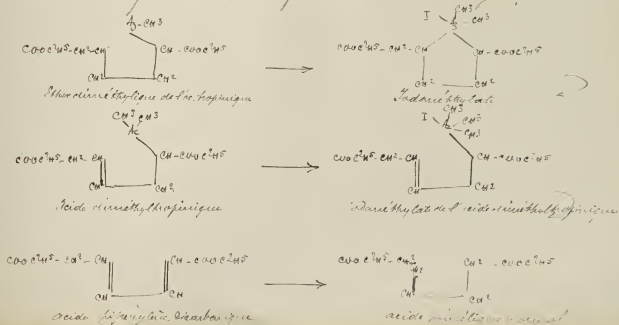 Az-CH3
COOC²H5-CH2-CH CH-COOC²H5
CH² CH²
Ether diméthylique de l'ac. tropinique
CH3
I Az CH3
COOC²H5-CH2-CH CH-COOC²H5
CH² CH²
Iodométhylate
CH3 CH3
Az
COOC²H5-CH2-CH CH-COOC²H5
CH CH2
Acide diméthyltropinique
CH3
I Az CH3
CH3
COOC²H5-CH2-CH CH-COOC²H5
CH CH2
Iodométhylate de l'acide diméthyltropinique
COOC²H5-CH²-CH CH-COOC²H5
CH CH
acide pipérylène dicarbonique
COOC²H5-CH2 CH²-COOC²H5
CH² CH²
acide